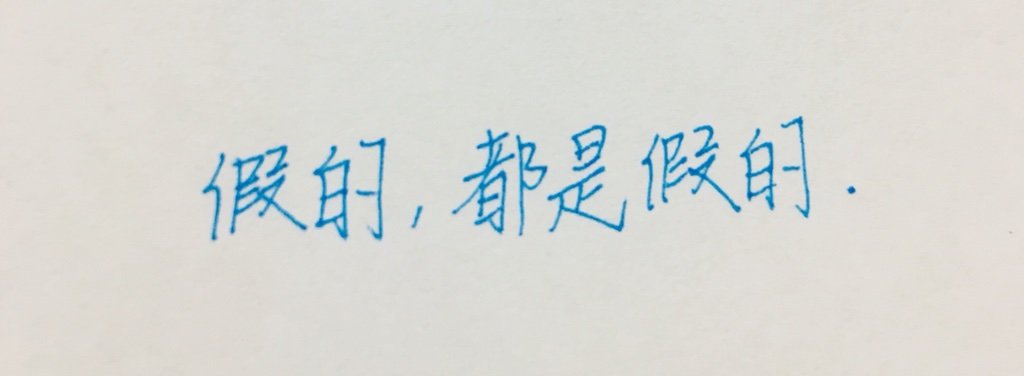 假的,都是假的.